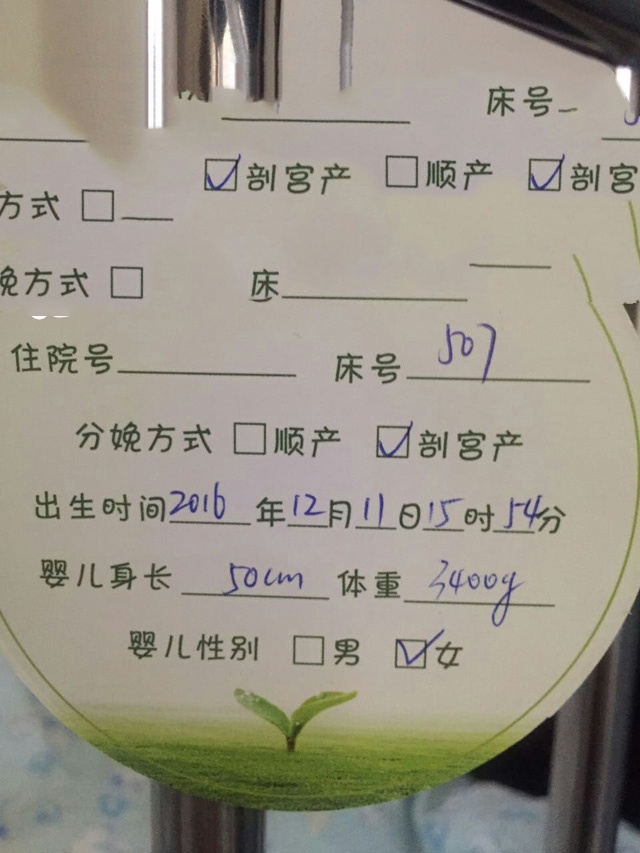 床号
☑剖宫产 □顺产 ☑剖宫
方式 □
娩方式 □ 床
住院号 床号 507
分娩方式 □顺产 ☑剖宫产
出生时间2016年12月11日15时54分
婴儿身长 50cm 体重 3400g
婴儿性别 □男 ☑女